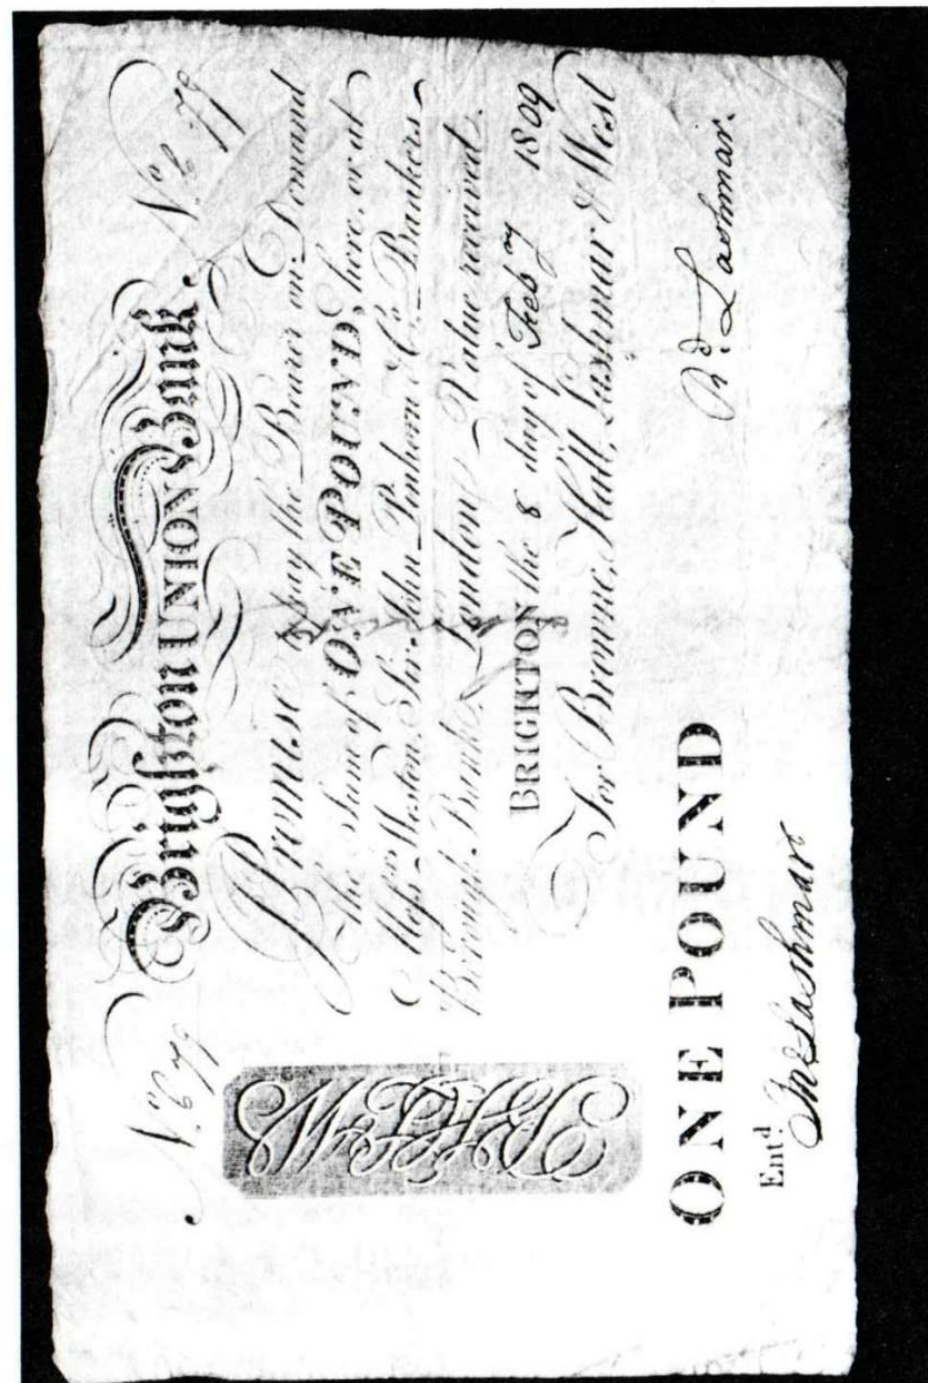 Brighton UNION Bank.
Promise to pay the Bearer on Demand
the Sum of ONE POUND, here, or at
Messrs Weston, Sir John Pinhorn & Co. Bankers
Borough Bank London Value received.
BRIGHTON the 8 day of Feby 1809
For Browne, Hall, Lashmar & West
BHL&W
ONE POUND
Rd. Lashmar.
Entd Jno Lashmar